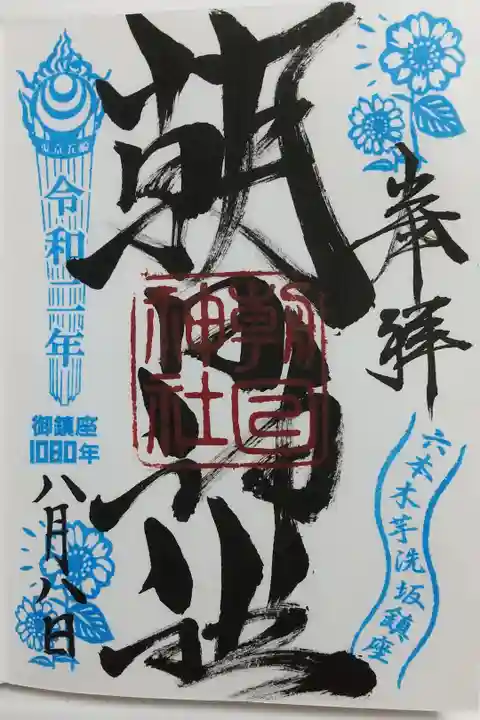 奉拝
六本木芋洗坂鎮座
朝日神社
朝日
神社
東京五輪
令和三年
御鎮座
1080年
八月八日